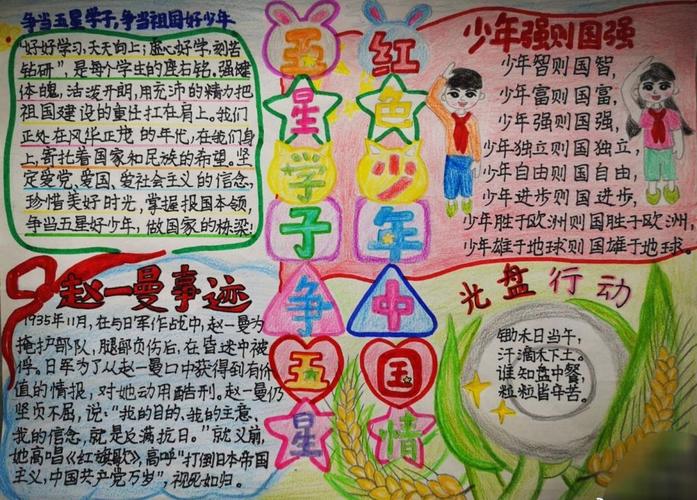 争当五星学子,争当祖国好少年
"好好学习,天天向上;虚心好学,刻苦
钻研",是每个学生的座右铭。强健
体魄,活泼开朗,用充沛的精力把
祖国建设的重任扛在肩上。我们
正处在风华正茂的年代,在我们身
上,寄托着国家和民族的希望。坚
定爱党、爱国、爱社会主义的信念,
珍惜美好时光,掌握报国本领,
争当五星好少年,做国家的栋梁!
红色少年中国情
五星学子争五星
少年强则国强
少年智则国智,
少年富则国富,
少年强则国强,
少年独立则国独立,
少年自由则国自由,
少年进步则国进步,
少年胜于欧洲则国胜于欧洲,
少年雄于地球则国雄于地球。
赵一曼事迹
1935年11月,在与日军作战中,赵一曼为
掩护部队,腿部负伤后,在昏迷中被
俘。日军为了从赵一曼口中获得到有价
值的情报,对她动用酷刑。赵一曼仍
坚贞不屈,说:"我的目的、我的主意、
我的信念,就是反满抗日。"就义前,
她高唱《红旗歌》,高呼"打倒日本帝国
主义,中国共产党万岁",视死如归。
光盘行动
锄禾日当午,
汗滴禾下土。
谁知盘中餐,
粒粒皆辛苦。